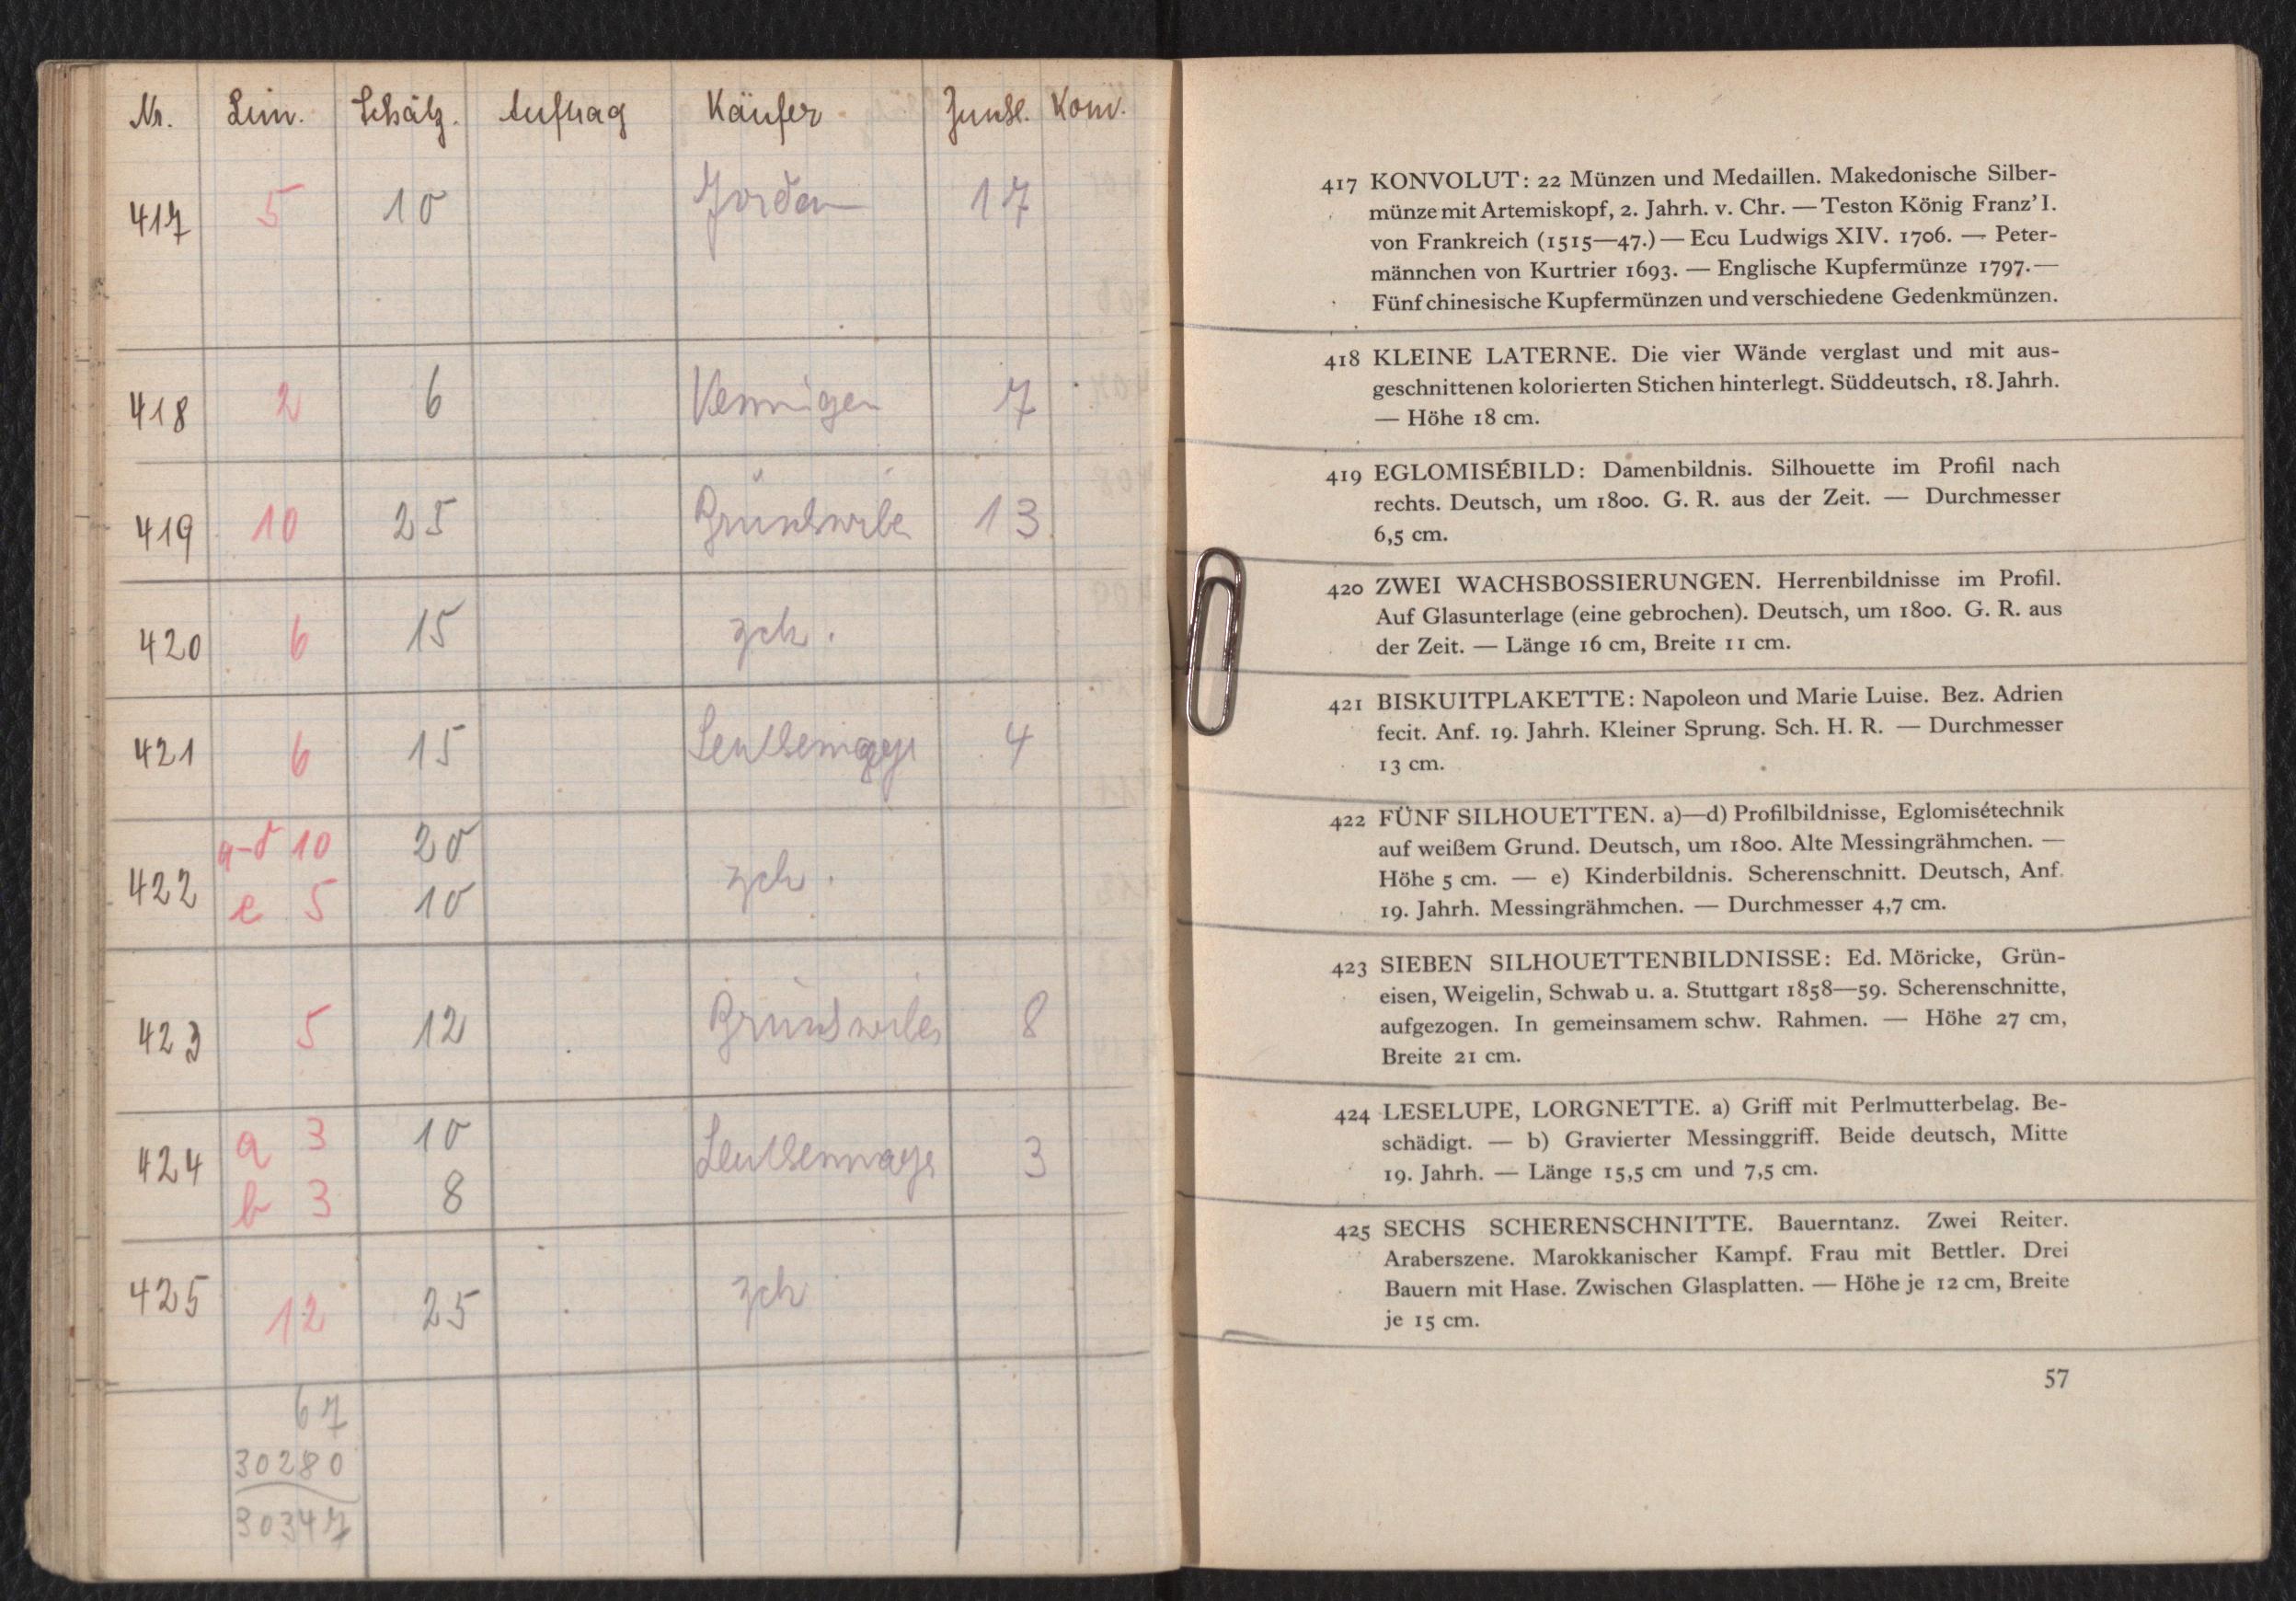 Nr. Lim. Schätz. Auftrag Käufer Zuschl. Kom.
417 5 10 Jordan 17
418 2 6 7
419 10 25 13
420 6 15 zck.
421 6 15 4
a-d 10 20
422 zck.
e 5 10
423 5 12 8
a 3 10
424 3
b 3 8
425 12 25 zck
67
30280
30347
417 KONVOLUT: 22 Münzen und Medaillen. Makedonische Silber-
münze mit Artemiskopf, 2. Jahrh. v. Chr. — Teston König Franz' I.
von Frankreich (1515—47.) — Ecu Ludwigs XIV. 1706. — Peter-
männchen von Kurtrier 1693. — Englische Kupfermünze 1797. —
Fünf chinesische Kupfermünzen und verschiedene Gedenkmünzen.
418 KLEINE LATERNE. Die vier Wände verglast und mit aus-
geschnittenen kolorierten Stichen hinterlegt. Süddeutsch, 18. Jahrh.
— Höhe 18 cm.
419 EGLOMISÉBILD: Damenbildnis. Silhouette im Profil nach
rechts. Deutsch, um 1800. G. R. aus der Zeit. — Durchmesser
6,5 cm.
420 ZWEI WACHSBOSSIERUNGEN. Herrenbildnisse im Profil.
Auf Glasunterlage (eine gebrochen). Deutsch, um 1800. G. R. aus
der Zeit. — Länge 16 cm, Breite 11 cm.
421 BISKUITPLAKETTE: Napoleon und Marie Luise. Bez. Adrien
fecit. Anf. 19. Jahrh. Kleiner Sprung. Sch. H. R. — Durchmesser
13 cm.
422 FÜNF SILHOUETTEN. a)—d) Profilbildnisse, Eglomisétechnik
auf weißem Grund. Deutsch, um 1800. Alte Messingrähmchen. —
Höhe 5 cm. — e) Kinderbildnis. Scherenschnitt. Deutsch, Anf.
19. Jahrh. Messingrähmchen. — Durchmesser 4,7 cm.
423 SIEBEN SILHOUETTENBILDNISSE: Ed. Möricke, Grün-
eisen, Weigelin, Schwab u. a. Stuttgart 1858—59. Scherenschnitte,
aufgezogen. In gemeinsamem schw. Rahmen. — Höhe 27 cm,
Breite 21 cm.
424 LESELUPE, LORGNETTE. a) Griff mit Perlmutterbelag. Be-
schädigt. — b) Gravierter Messinggriff. Beide deutsch, Mitte
19. Jahrh. — Länge 15,5 cm und 7,5 cm.
425 SECHS SCHERENSCHNITTE. Bauerntanz. Zwei Reiter.
Araberszene. Marokkanischer Kampf. Frau mit Bettler. Drei
Bauern mit Hase. Zwischen Glasplatten. — Höhe je 12 cm, Breite
je 15 cm.
57